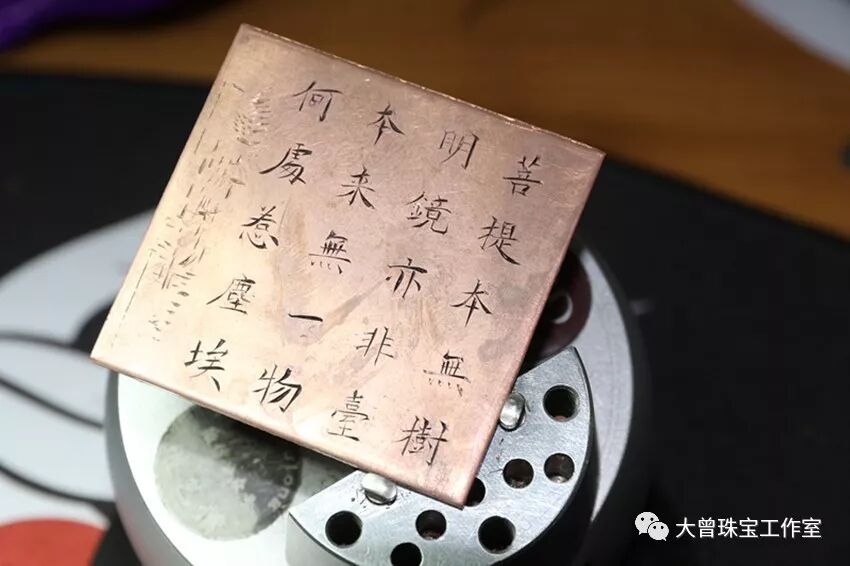 菩提本無樹
明鏡亦非臺
本来無一物
何處惹塵埃
大曾珠宝工作室